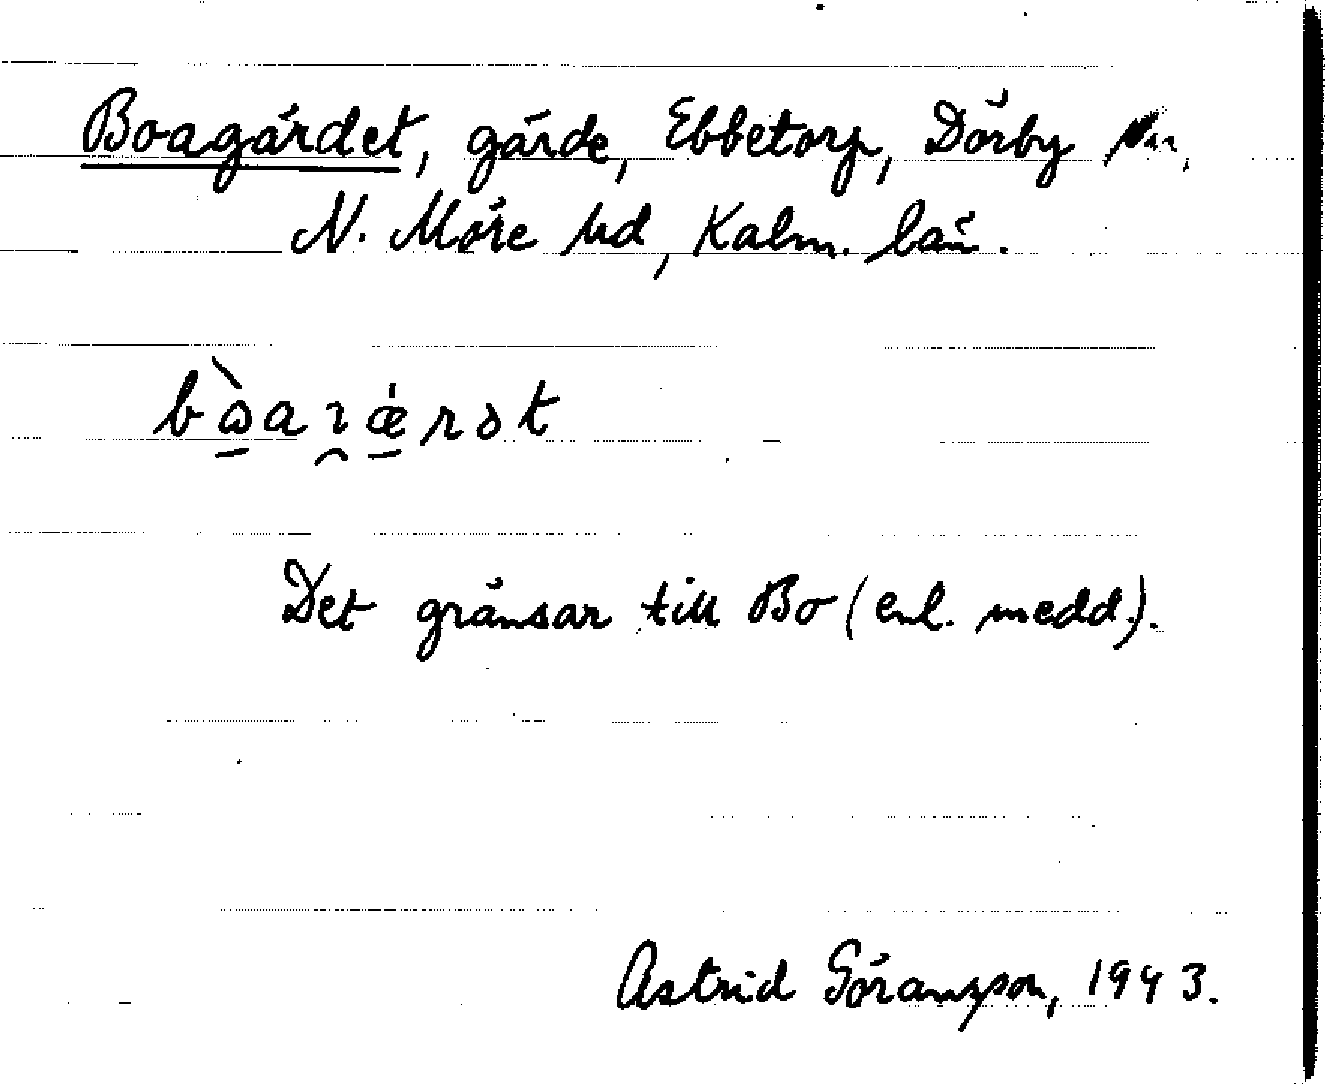 Boagärdet, gärde, Ebbetorp, Dörby sn,
N. Möre hd, Kalm. län.
Det gränsar till Bo (enl. medd.).
Astrid Göranzson, 1943.